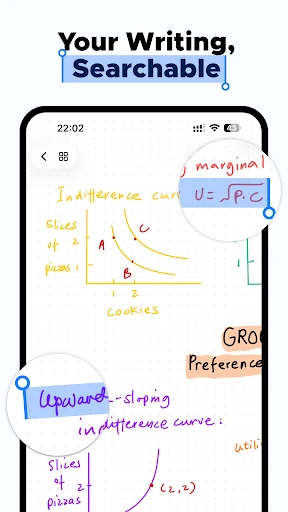 Your Writing,
Searchable
22:02
43
marginal
Indifference curve
U = √P.C
Slices
of 2
pizzas 1
A
C
B
1 2
cookies
1
GROU
Preference
Upward--sloping
indifference curve:
utili
Slices
of
pizzas 2
(2,2)